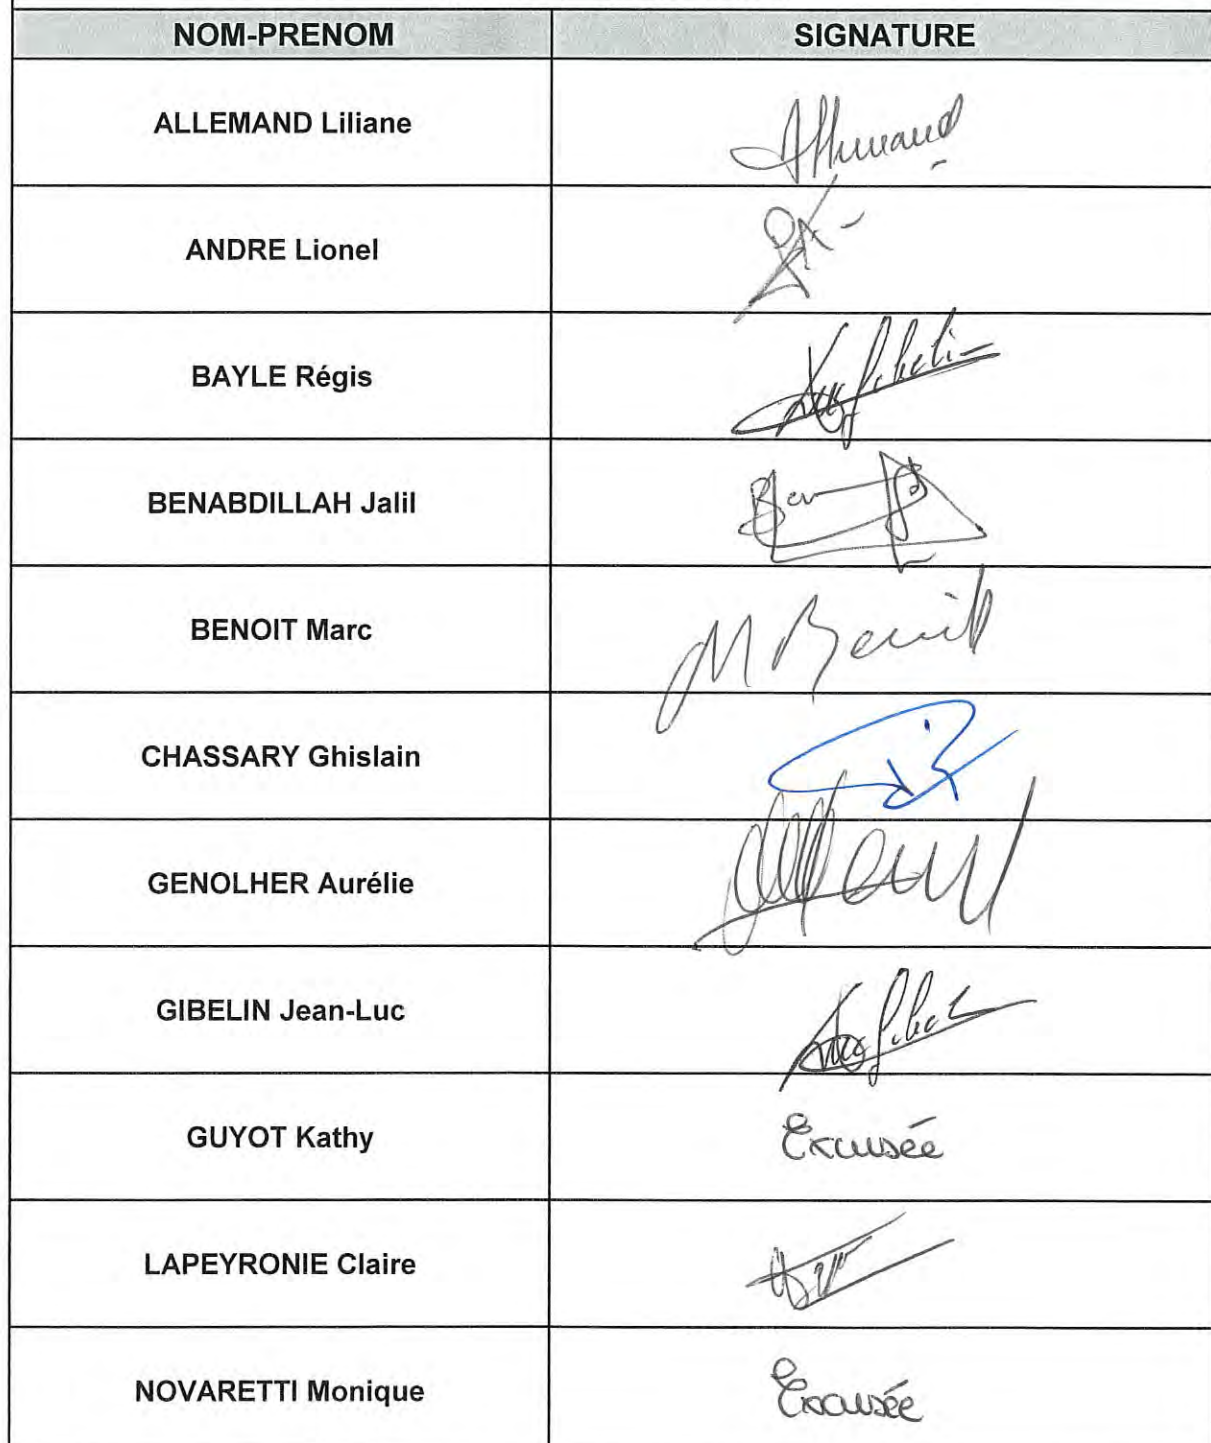 NOM-PRENOM SIGNATURE
ALLEMAND Liliane Allemand
ANDRE Lionel
BAYLE Régis
BENABDILLAH Jalil Ben
BENOIT Marc M Benoit
CHASSARY Ghislain
GENOLHER Aurélie
GIBELIN Jean-Luc
GUYOT Kathy Excusée
LAPEYRONIE Claire
NOVARETTI Monique Excusée